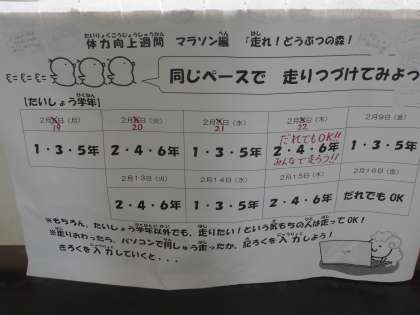 体力向上週間 マラソン編 『走れ！どうぶつの森！
同じペースで 走りつづけてみよっ
【たいしょう学年】
2月 日（月） 2月 日（火） 2月 日（水） 2月 日（木） 2月9日（金）
19 20 21 22
1・3・5年 2・4・6年 1・3・5年 2・4・6年 1・3・5年
だれでもOK!!
みんなで走ろう!!
2月13日（火） 2月14日（水） 2月15日（木） 2月16日（金）
2・4・6年 1・3・5年 2・4・6年 だれでもOK
※もちろん、たいしょう学年以外でも、走りたい！という気もちの人は走ってOK！
※走りおわったら、パソコンで何しゅう走ったか、記ろくを入力しよう！
きろくを入力していくと・・・